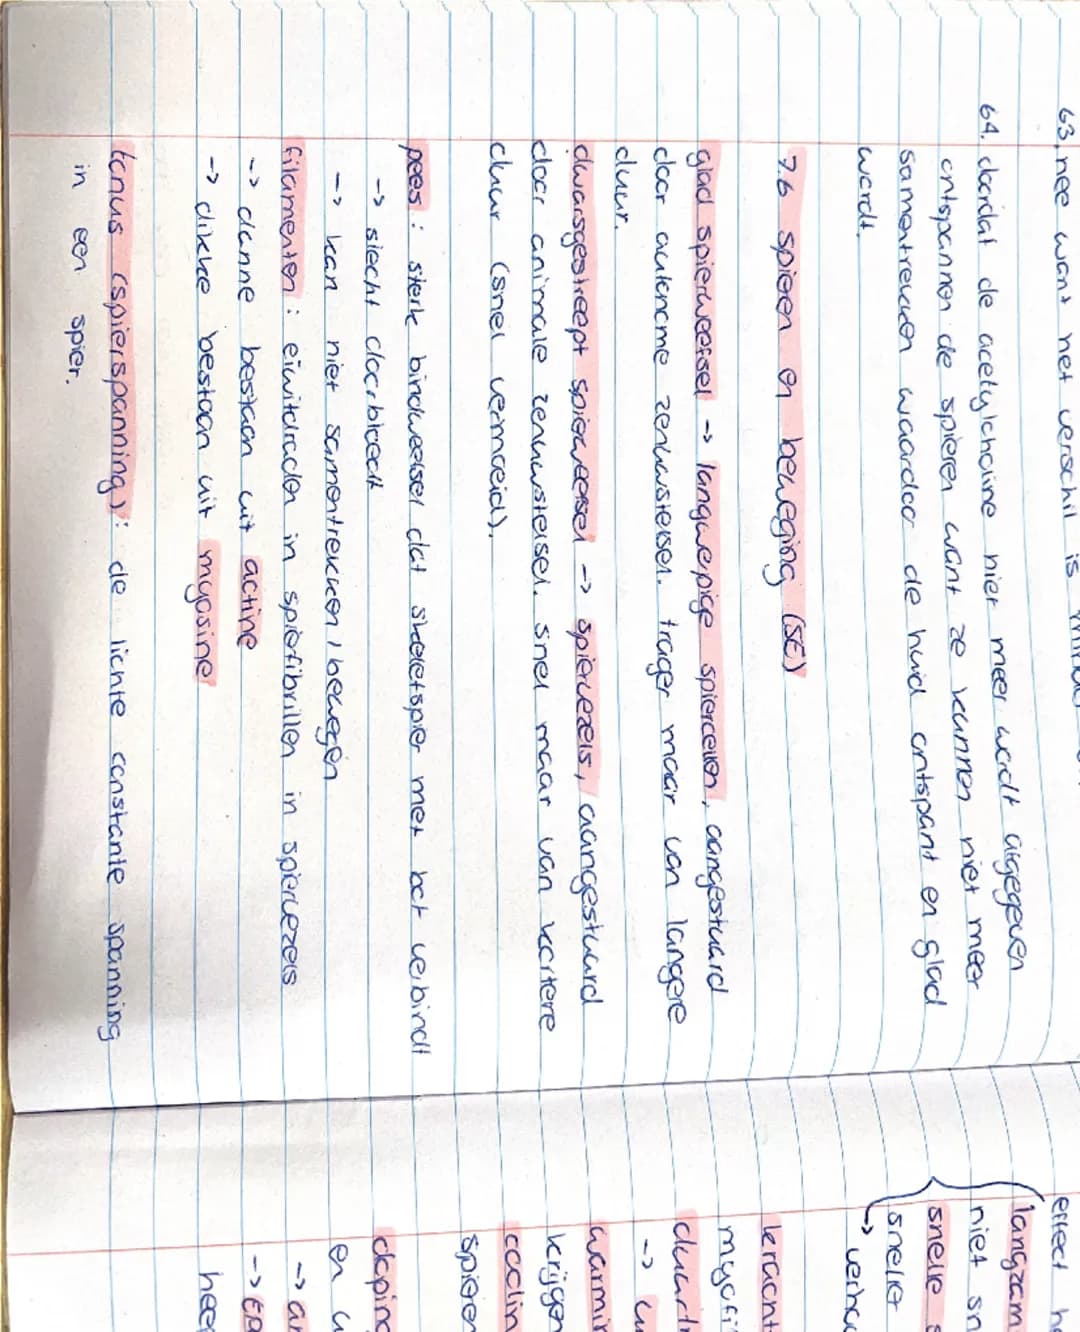 63. nee want het verschil is
64. doordat de acetylcholine niet meer wordt afgegeven
ontspannen de spieren want ze kunnen niet meer
samentrekken waardoor de huid ontspant en glad
wordt.
7.6 spieren en beweging (SE)
glad spierweefsel -> langwepige spiercellen, aangestuurd
door autonome zenuwstelsel. trager maar van langere
duur.
dwarsgestreept spierweefsel -> spiervezels, aangestuurd
door animale zenuwstelsel. snel maar van kortere
duur (snel vermoeid).
pees: sterk bindweefsel dat skeletspier met bot verbindt
-> slecht doorbloedt
-> kan niet samentrekken / bewegen
filamenten: eiwitdraden in spierfibrillen in spiervezels
-> dunne bestaan uit actine
-> dikke bestaan uit myosine
tonus (spierspanning): de lichte constante spanning
in een spier.
effect
langzam
niet sn
snelle s
sneller
->
kracht
myofi
duur
->
warmi
krijgen
coolin
spieren
doping
en
->
->
heef